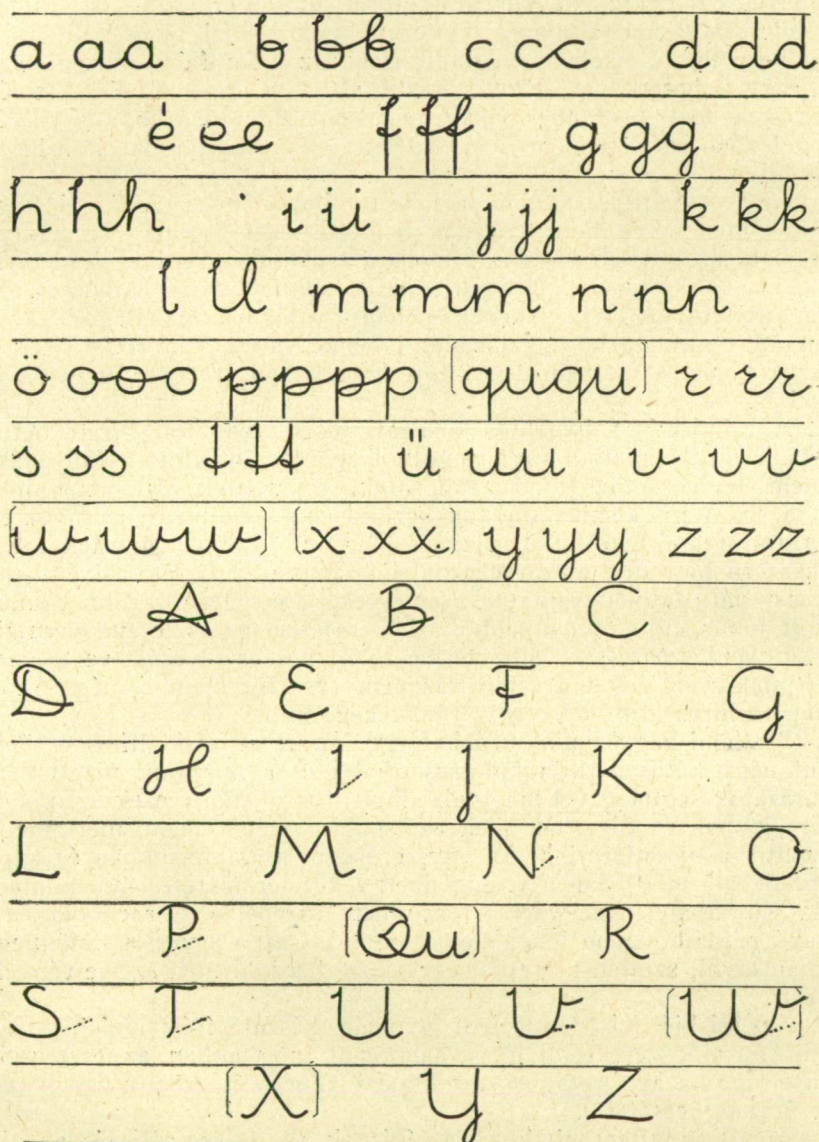 a aa b bb c cc d dd
é ee f ff g gg
h hh i ii j jj k kk
l ll m mm n nn
ö ooo p ppp (ququ) r rr
s ss t tt ü uu v vv
(w ww) (x xx) y yy z zz
A B C
D E F G
H I J K
L M N O
P (Qu) R
S T U V (W)
(X) Y Z